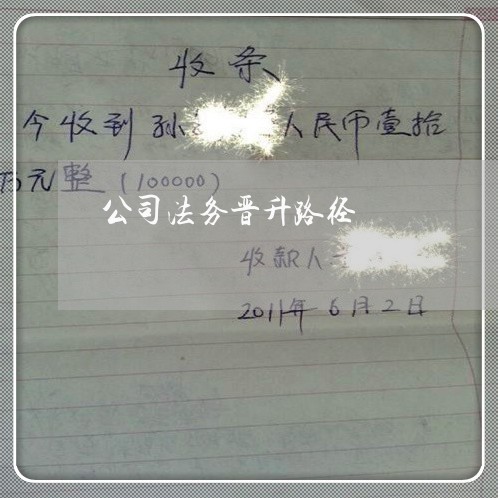 收条
今收到孙 人民币壹拾
万元整(100000)
公司法务晋升路径
收款人
2011年6月2日